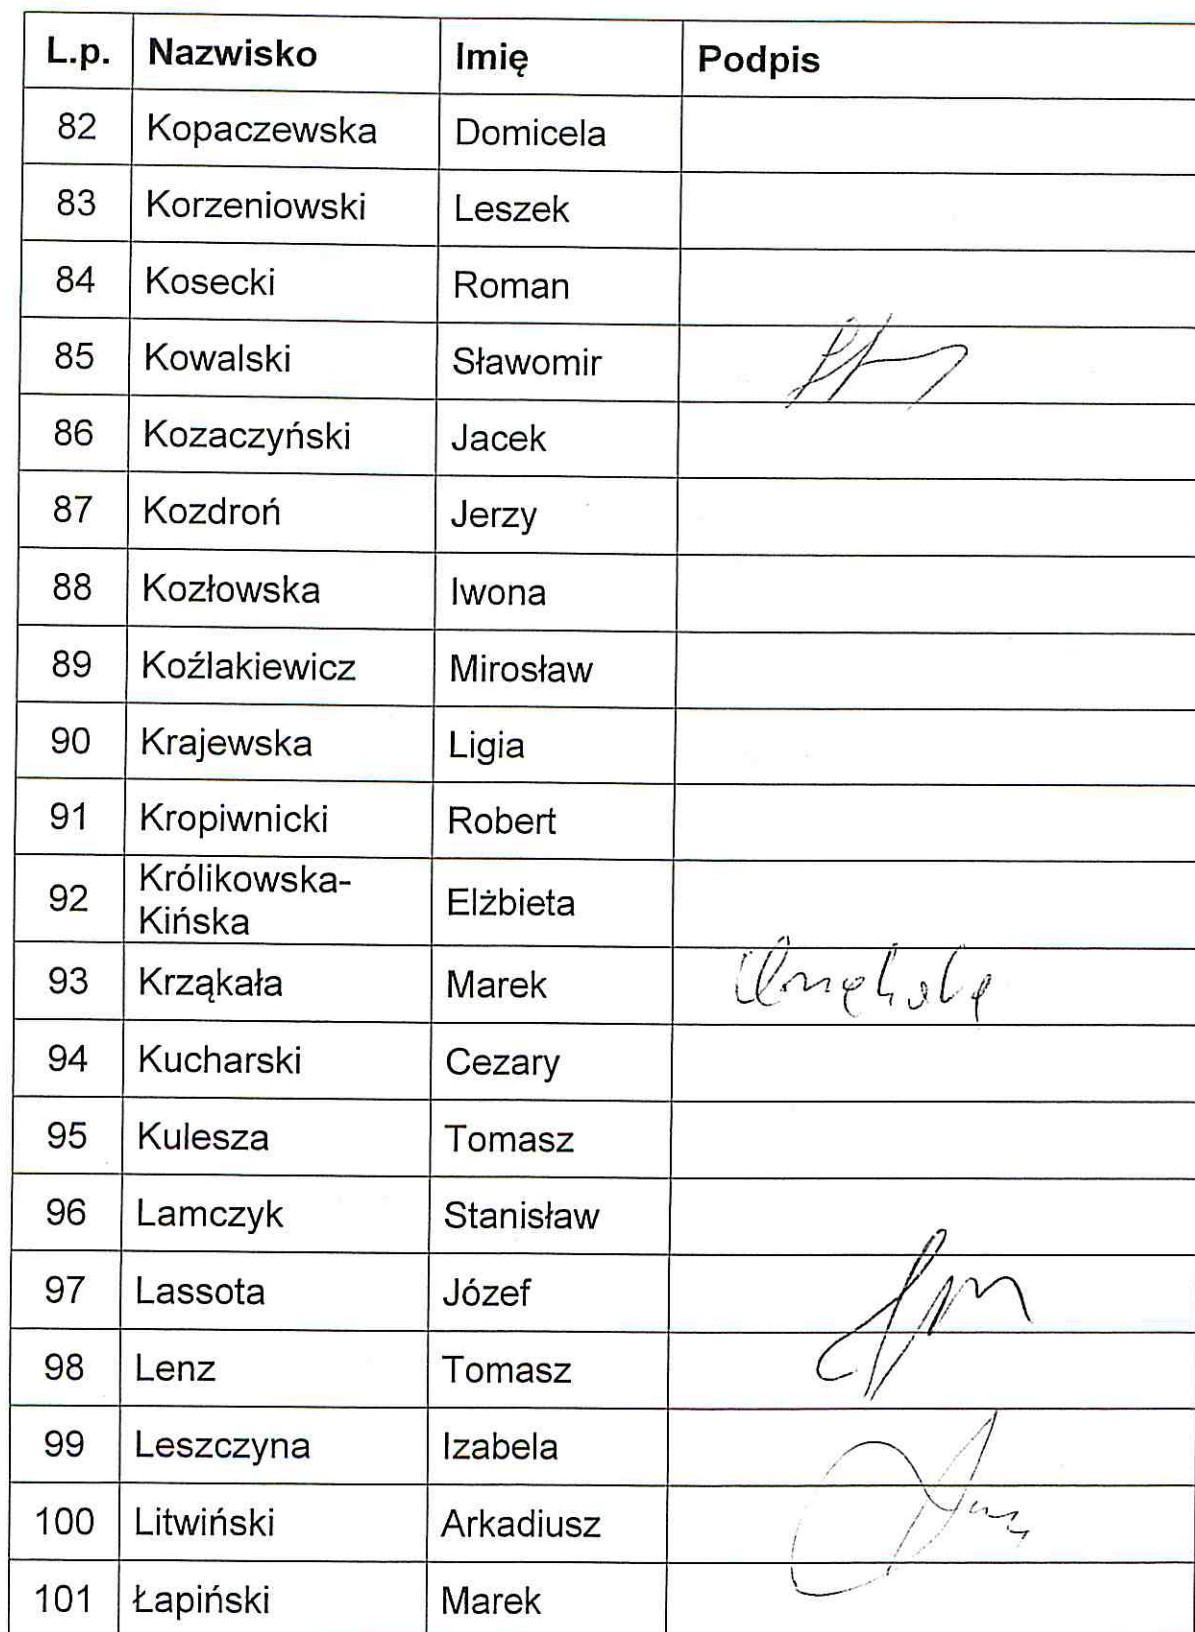 L.p. Nazwisko Imię Podpis
82 Kopaczewska Domicela
83 Korzeniowski Leszek
84 Kosecki Roman
85 Kowalski Sławomir
86 Kozaczyński Jacek
87 Kozdroń Jerzy
88 Kozłowska Iwona
89 Koźlakiewicz Mirosław
90 Krajewska Ligia
91 Kropiwnicki Robert
92 Królikowska-
Kińska Elżbieta
93 Krząkała Marek
94 Kucharski Cezary
95 Kulesza Tomasz
96 Lamczyk Stanisław
97 Lassota Józef
98 Lenz Tomasz
99 Leszczyna Izabela
100 Litwiński Arkadiusz
101 Łapiński Marek